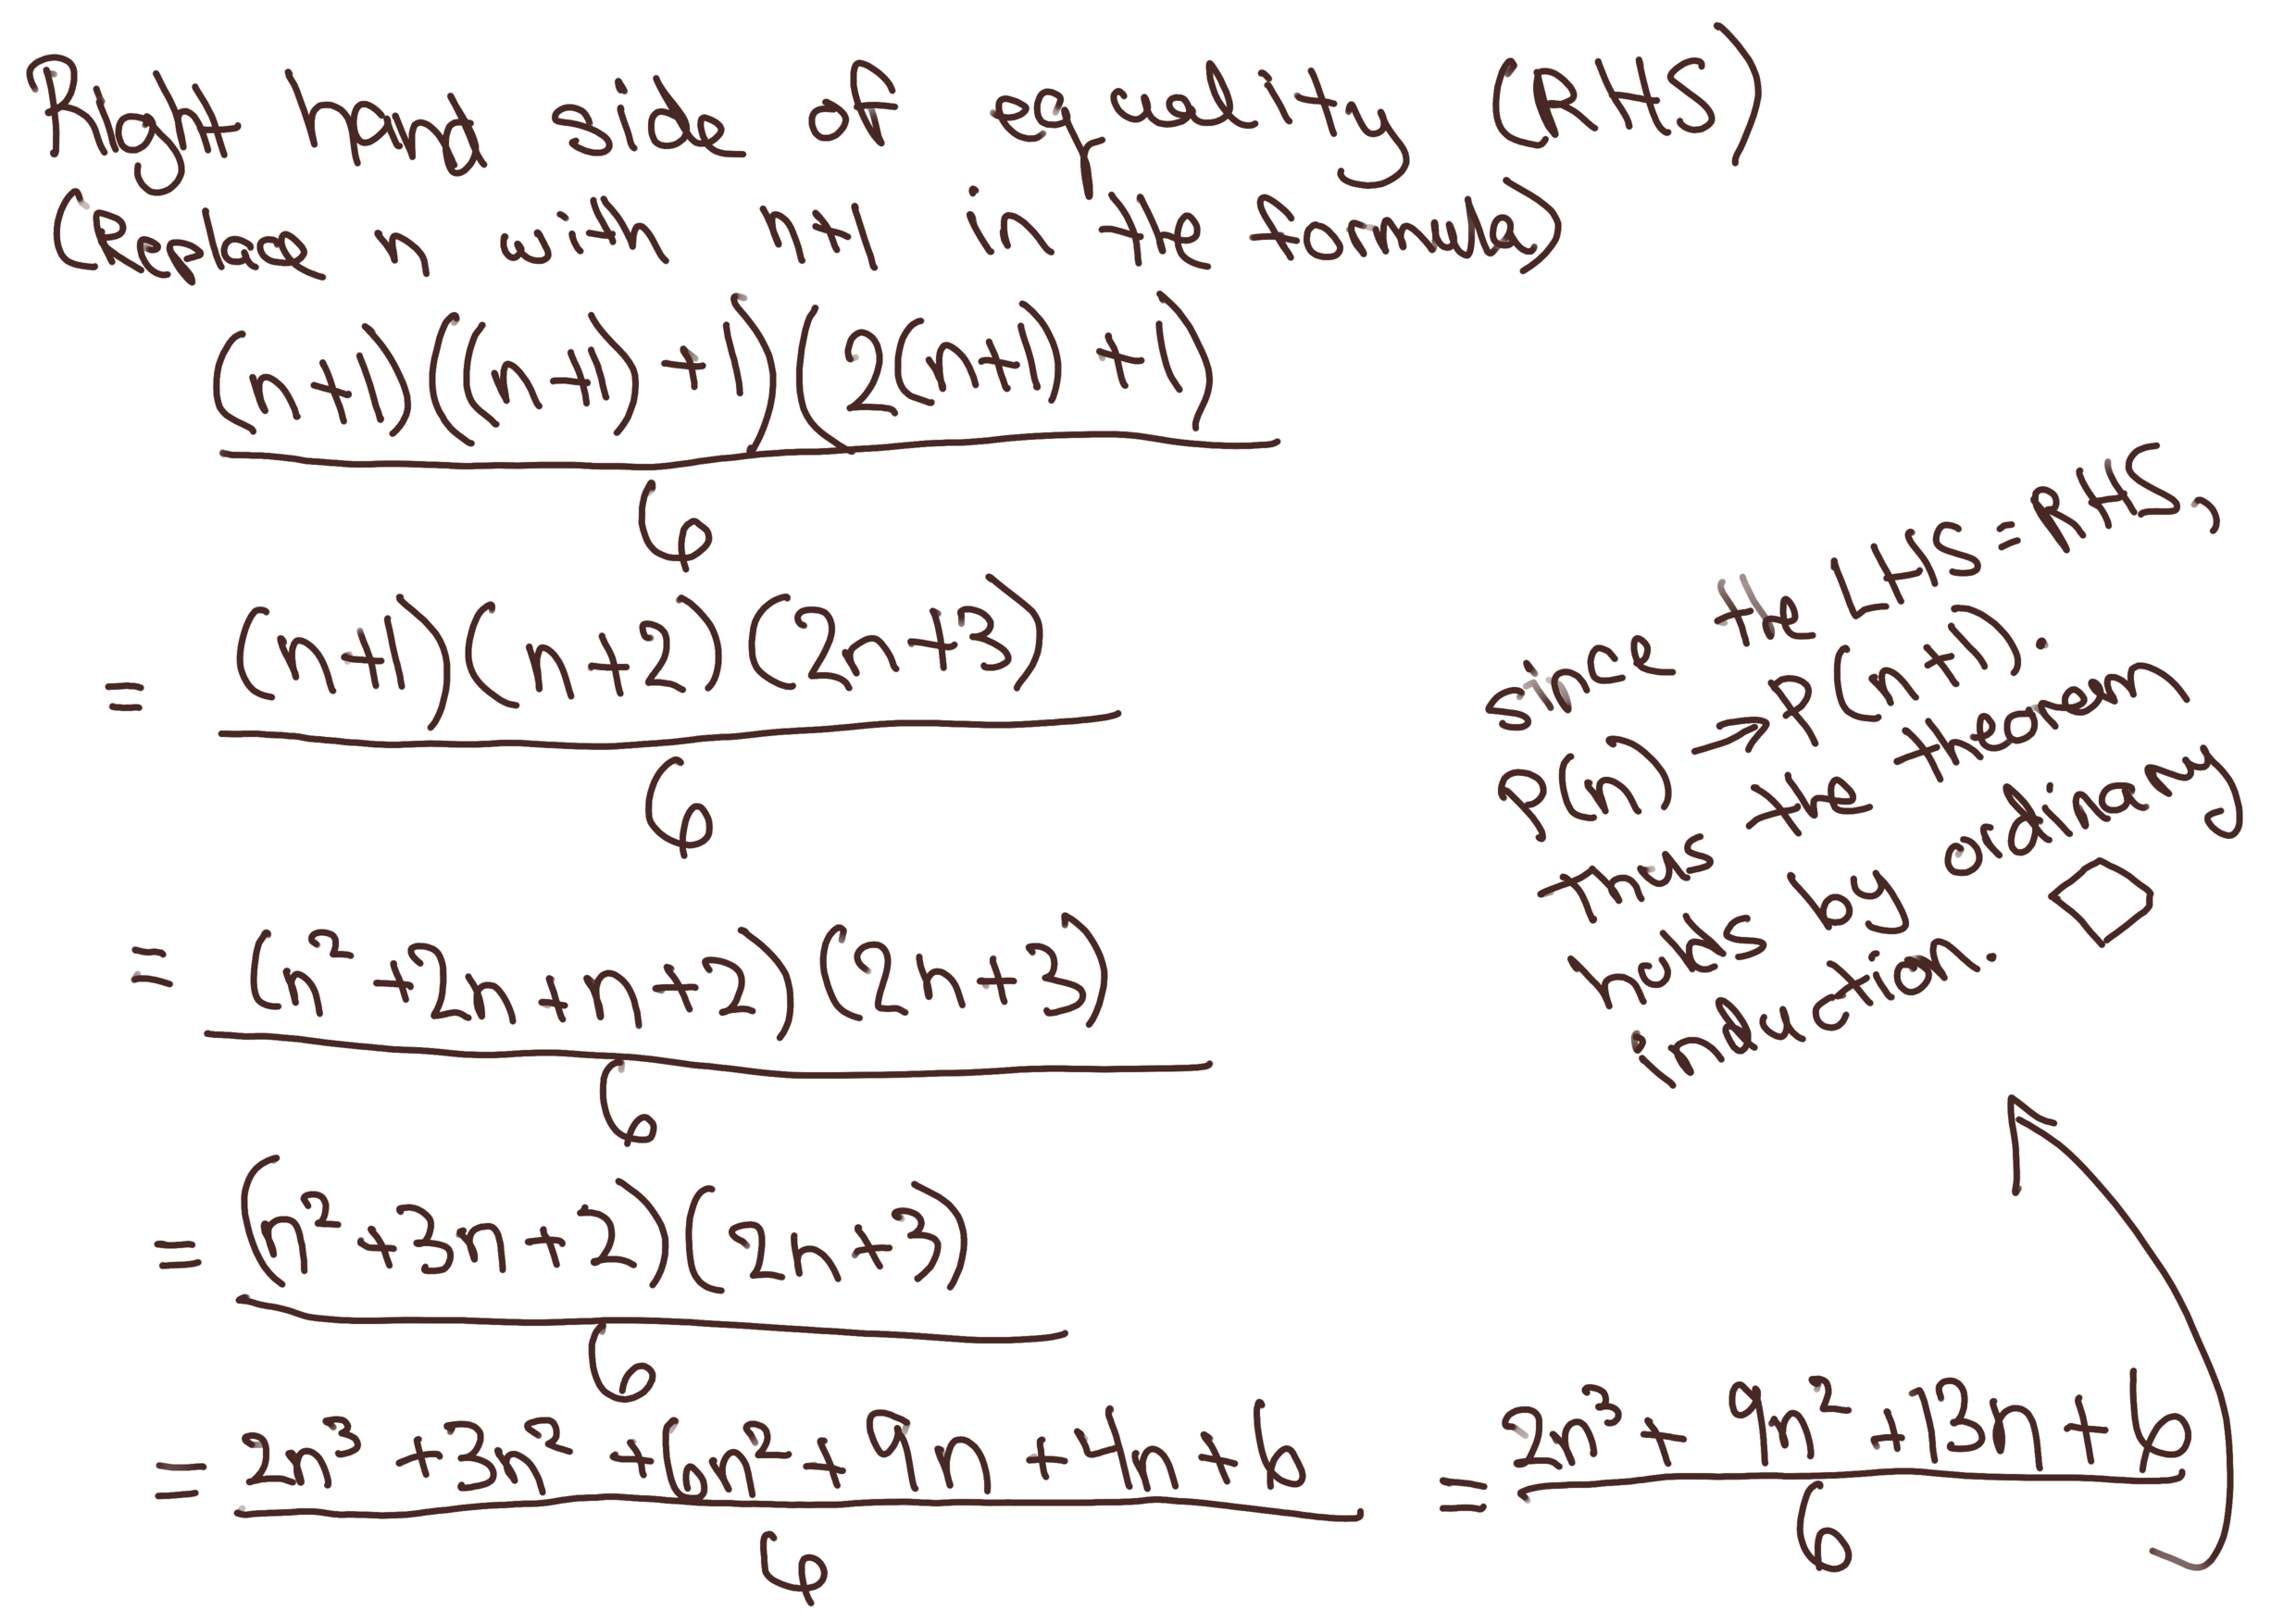 Right hand side of equality (RHS)
(Replace n with n+1 in the formula)
(n+1)((n+1)+1)(2(n+1)+1)
6
= (n+1)(n+2)(2n+3)
6
= (n²+2n+n+2)(2n+3)
6
= (n²+3n+2)(2n+3)
6
= 2n³+3n²+6n²+9n+4n+6
6
= 2n³+9n²+13n+6
6
since the LHS=RHS,
P(n) → P(n+1).
Thus the theorem
holds by ordinary
induction. □